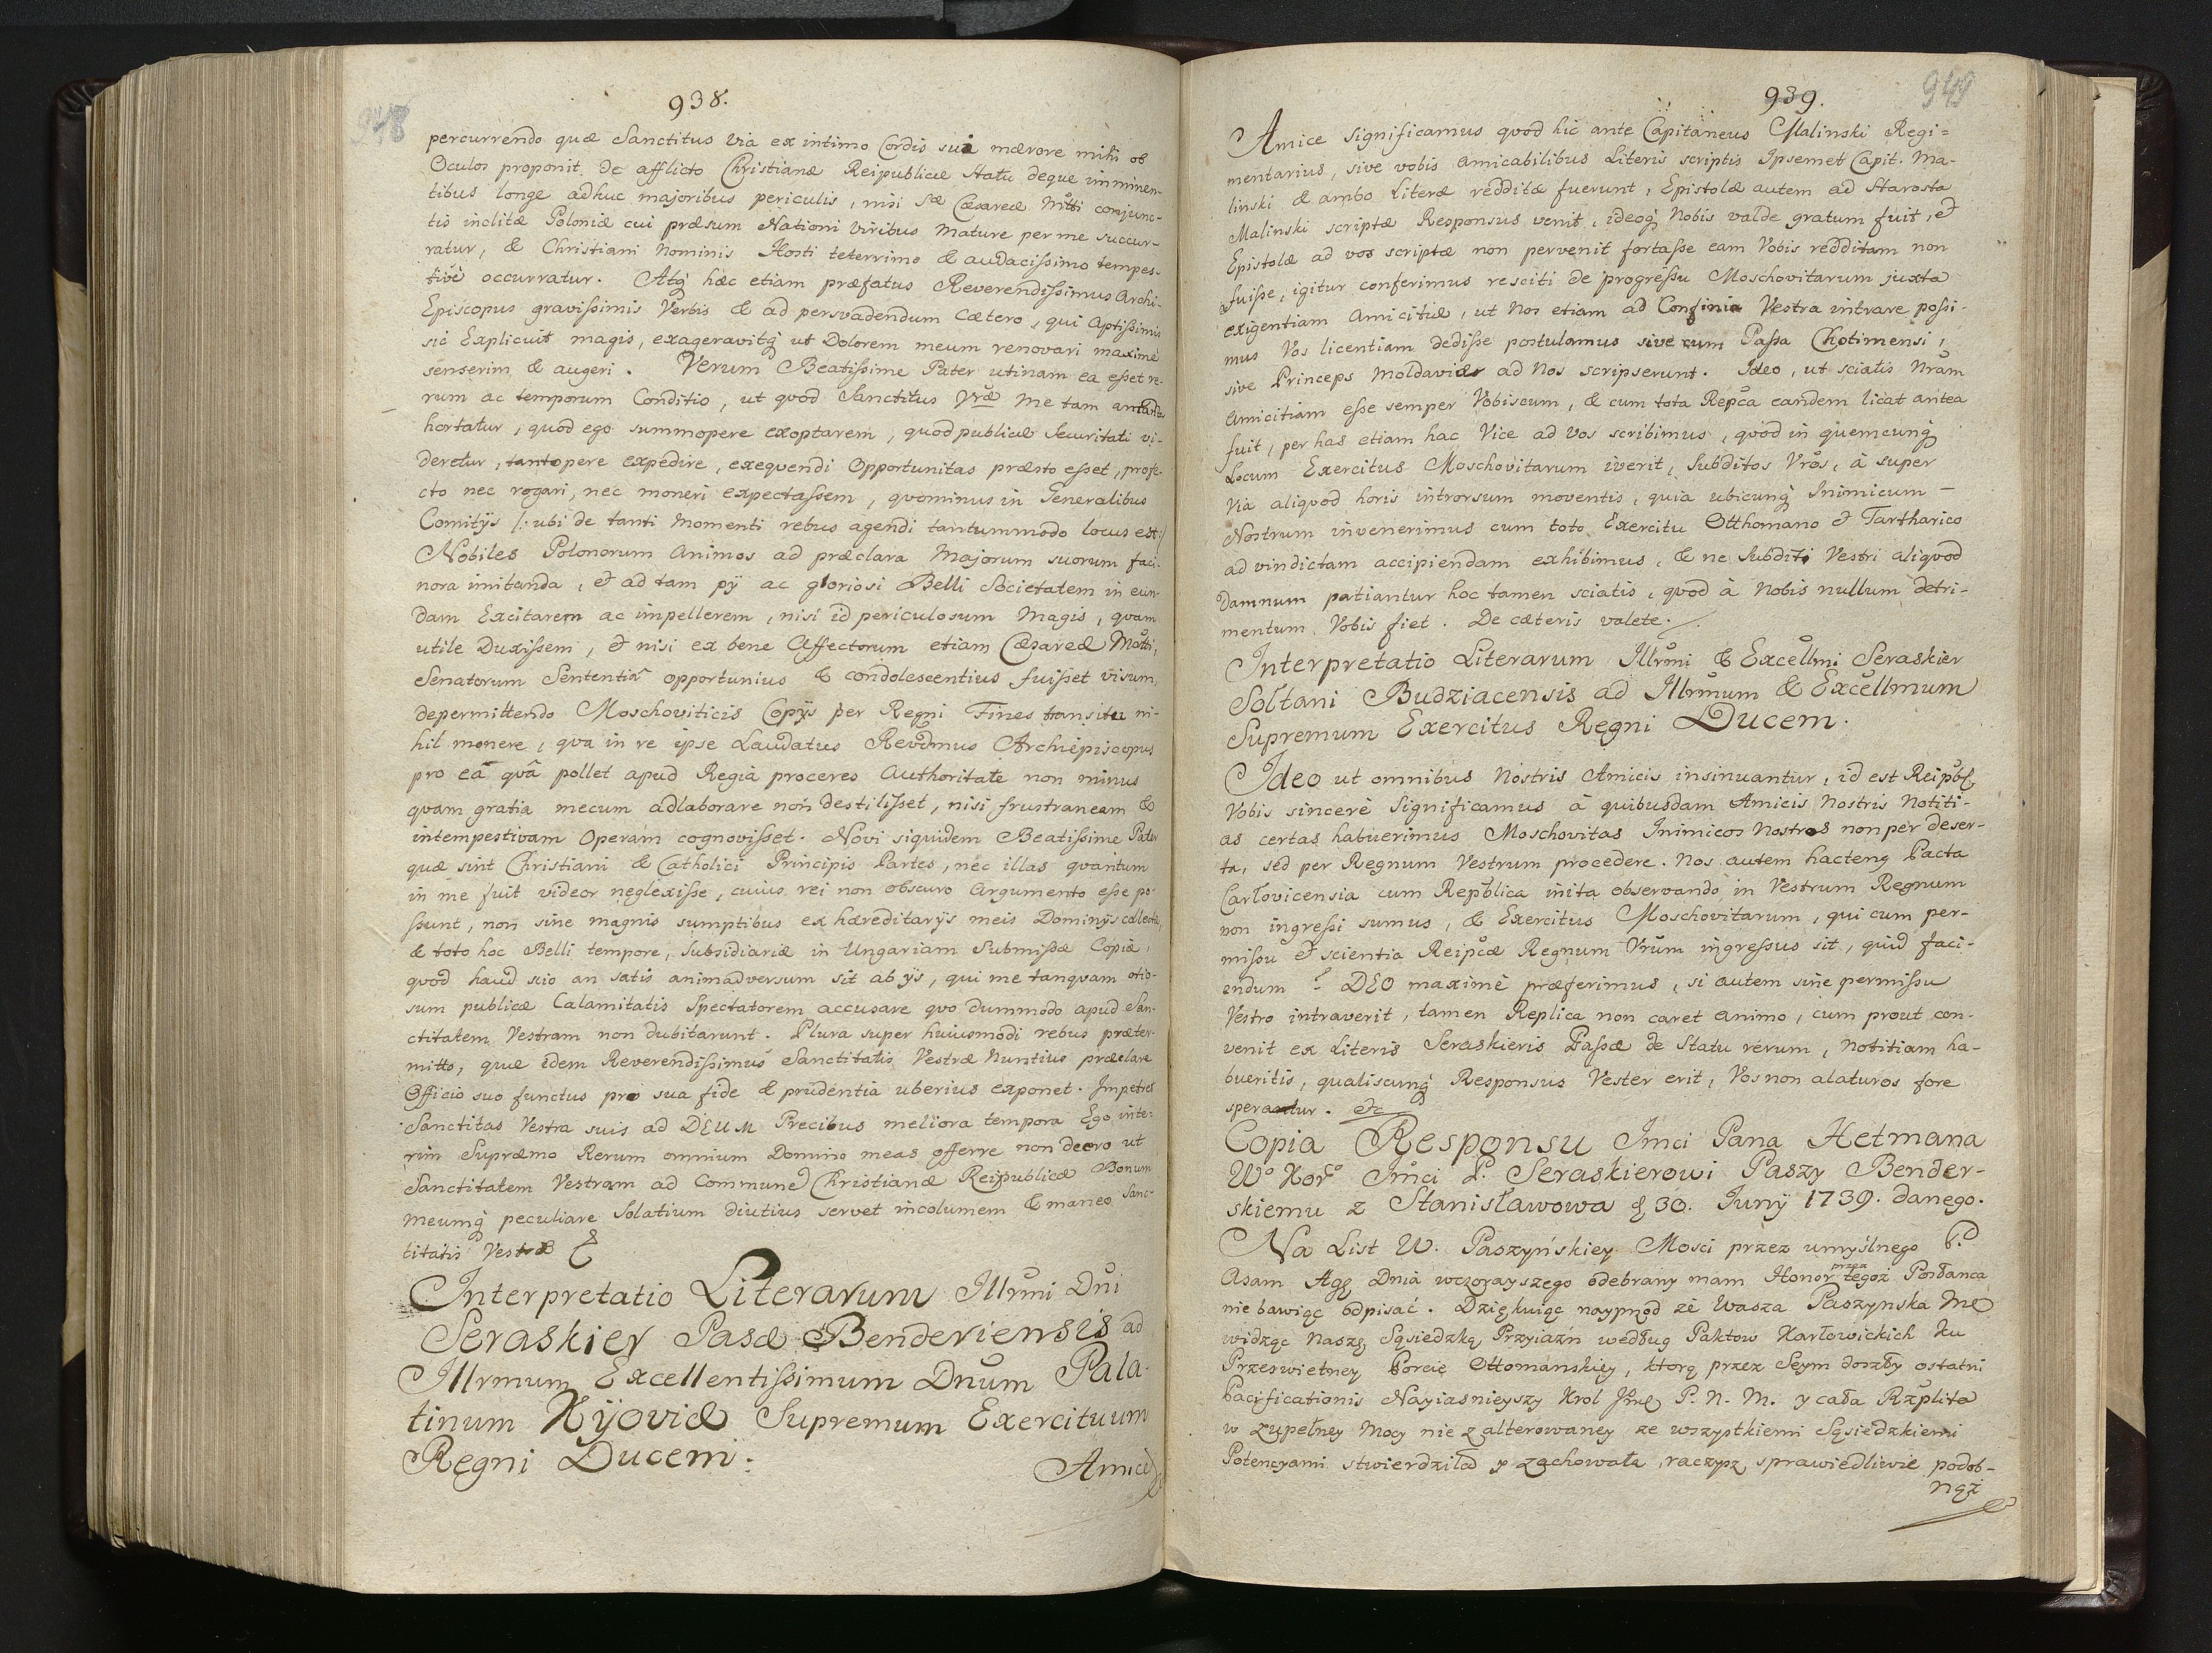 938.
948
percurrendo quæ Sanctitus Via ex intimo Cordis sui mærore mihi ob
Oculos proponit, de afflicto Christianæ Reipublicæ Statu deque imminen-
tibus longe adhuc majoribus periculis, nisi Sæ Cæsareæ Mtti conjunc-
tis inclitæ Poloniæ cui præsum Nationi Viribus mature per me succur-
ratur, & Christiani Nominis Hosti teterrimo & audacissimo tempes-
tive occurratur. Atq hæc etiam præfatus Reverendissimus Archi-
Episcopus gravissimis Verbis & ad persvadendum Cætero, qui aptissimis
sic Explicuit magis, exageravitq ut Dolorem meum renovari maxime
senserim & augeri. Verum Beatissime Pater utinam ea esset re-
rum ac temporum Conditio, ut quod Sanctitus Vræ me tam
hortatur, quod ego summopere exoptarem, quod publicæ Securitati vi-
deretur, tantopere expedire, exequendi Opportunitas præsto esset, profe-
cto nec rogari, nec moneri expectassem, quominus in Generalibus
Comitÿs /: ubi de tanti Momenti rebus agendi tantummodo locus est:/
Nobiles Polonorum Animos ad præclara Majorum suorum faci-
nora imitanda, et ad tam pÿ ac gloriosi Belli Societatem in eun-
dam Excitarem ac impellerem, nisi id periculosum Magis, quam
utile Duxissem, et nisi ex bene Affectorum etiam Cæsareæ Matti,
Senatorum Sententiâ opportunius & condolescentius fuisset visum,
depermittendo Moschoviticis Copÿs per Regni Fines transitu ni-
hil monere, qua in re ipse Laudatus Revdmus Archiepiscopus
pro eâ quâ pollet apud Regia proceres Authoritate non minus
quam gratia mecum adlaborare non destitisset, nisi frustraneam &
intempestivam Operam cognovisset. Novi siquidem Beatissime Pater
quæ sint Christiani & Catholici Principis Partes, nec illas quantum
in me fuit videor neglexisse, cuius rei non obscuro Argumento esse po-
ssunt, non sine magnis sumptibus ex hæreditarÿs meis Dominÿs collectæ,
& toto hoc Belli tempore, Subsidiariæ in Ungariam Submissæ Copiæ,
quod haud scio an satis animadversum sit ab ÿs, qui me tanquam otio-
sum publicæ Calamitatis Spectatorem accusare quo dummodo apud San-
ctitatem Vestram non dubitarunt. Plura super huiusmodi rebus præter-
mitto, quæ idem Reverendissimus Sanctitatis Vestræ Nuntius præclare
Officio suo functus pro sua fide & prudentia uberius exponet. Impetret
Sanctitas Vestra suis ad DEUM Precibus meliora tempora Ego inte-
rim Supræmo Rerum omnium Domino meas offerre non deero ut
Sanctitatem Vestram ad Commune Christianæ Reipublicæ Bonum
Meumq peculiare Solatium diutius servet incolumem & maneo Sanc-
titatis Vestræ
Interpretatio Literarum Illrmi Dni
Seraskier Pasæ Benderiensis ad
Illrmum Excellentissimum Dnum Pala-
tinum Kÿoviæ Supremum Exercituum
Regni Ducem.
Amice
939.
949
Amice significamus quod hic ante Capitaneus Malinski Regi=
mentarius, sive vobis amicabilibus Literis scriptis Ipsemet Capit. Ma-
linski & ambo Literæ redditæ fuerunt, Epistolæ autem ad Starosta
Malinski scriptæ Responsus venit, ideoq Nobis valde gratum fuit, et
Epistolæ ad vos scriptæ non pervenit fortasse eam Vobis redditam non
fuisse, igitur conferimus resciti de progressu Moschovitarum juxta
exigentiam Amicitiæ, ut Nos etiam ad Confinia Vestra intrare possi-
mus Vos licentiam dedisse postulamus sive cum Passa Chotimensi,
sive Princeps Moldaviæ ad Nos scripserunt. Ideo, ut sciatis Nram
Amicitiam esse semper Vobiscum, & cum tota Repca eandem licat antea
fuit, per has etiam hac Vice ad Vos scribimus, quod in quemcunq
Locum Exercitus Moschovitarum iverit, Subditos Vros, à super
Via aliquod horis introrsum moventis, quia ubicunq Inimicum –
Nostrum invenerimus cum toto Exercitu Otthomano et Tartharico
ad vindictam accipiendam exhibimus, & ne Subditi Vestri aliquod
Damnum patiantur hoc tamen sciatis, quod à Nobis nullum detri-
mentum Vobis fiet. De cæteris valete.
Interpretatio Literarum Illrmi & Excellmi Seraskier
Soltani Budziacensis ad Illrmum & Excellmum
Supremum Exercitus Regni Ducem.
Ideo ut omnibus Nostris Amicis insinuantur, id est Reipbl
Vobis sincerè significamus à quibusdam Amicis Nostris Notiti-
as certas habuerimus Moschovitas Inimicos Nostros non per deser-
ta, sed per Regnum Vestrum procedere. Nos autem hactenq Pacta
Carłovicensia cum Repblica inita observando in Vestrum Regnum
non ingressi sumus, & Exercitus Moschovitarum, qui cum per-
missu et scientia Reipcæ Regnum Vrum ingressus sit, quid faci-
endum? DEO maximè præferimus, si autem sine permissu
Vestro intraverit, tamen Replica non caret animo, cum prout con-
venit ex Literis Seraskieris Passæ de Statu rerum, Notitiam ha-
bueritis, qualiscunq Responsus Vester erit, Vos non alaturos fore
sperantur. etc
Copia Responsu Jmci Pana Hetmana
Wo Koro Jmci P. Seraskierowi Paszy Bender-
skiemu z Stanisławowa d 30. Junÿ 1739. danego.
Na List W. Paszyńskiey Mosci przez umyślnego P.
Asam Agę Dnia wczorayszego odebrany mam Honor przez tegoż Posłanca
nie bawiąc odpisać. Dziękuiąc naypnod że Wasza Paszynska Mc
widząc Naszę Sąsiedzką Przyiaźn według Paktow Karłowickich ku
Przeswietney Porcie Ottomanskiey, ktorą przez Seym doszły ostatni
Pacificationis Nayiasnieyszy Krol Jmc P. N. M. y cała Rzplita
w zupełney Mocy nie zalterowaney ze wszystkiemi Sąsiedzkiemi
Potencyami stwierdziła y zachowała, raczysz sprawiedliwie podob-
nąż